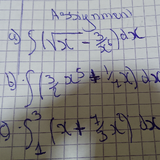 Assignment
a) ∫(√x - 3/x⁴)dx
b) ∫(3/2 x⁵ + 1/7 x)dx
c) ∫₁³(x + 7/3 x²)dx